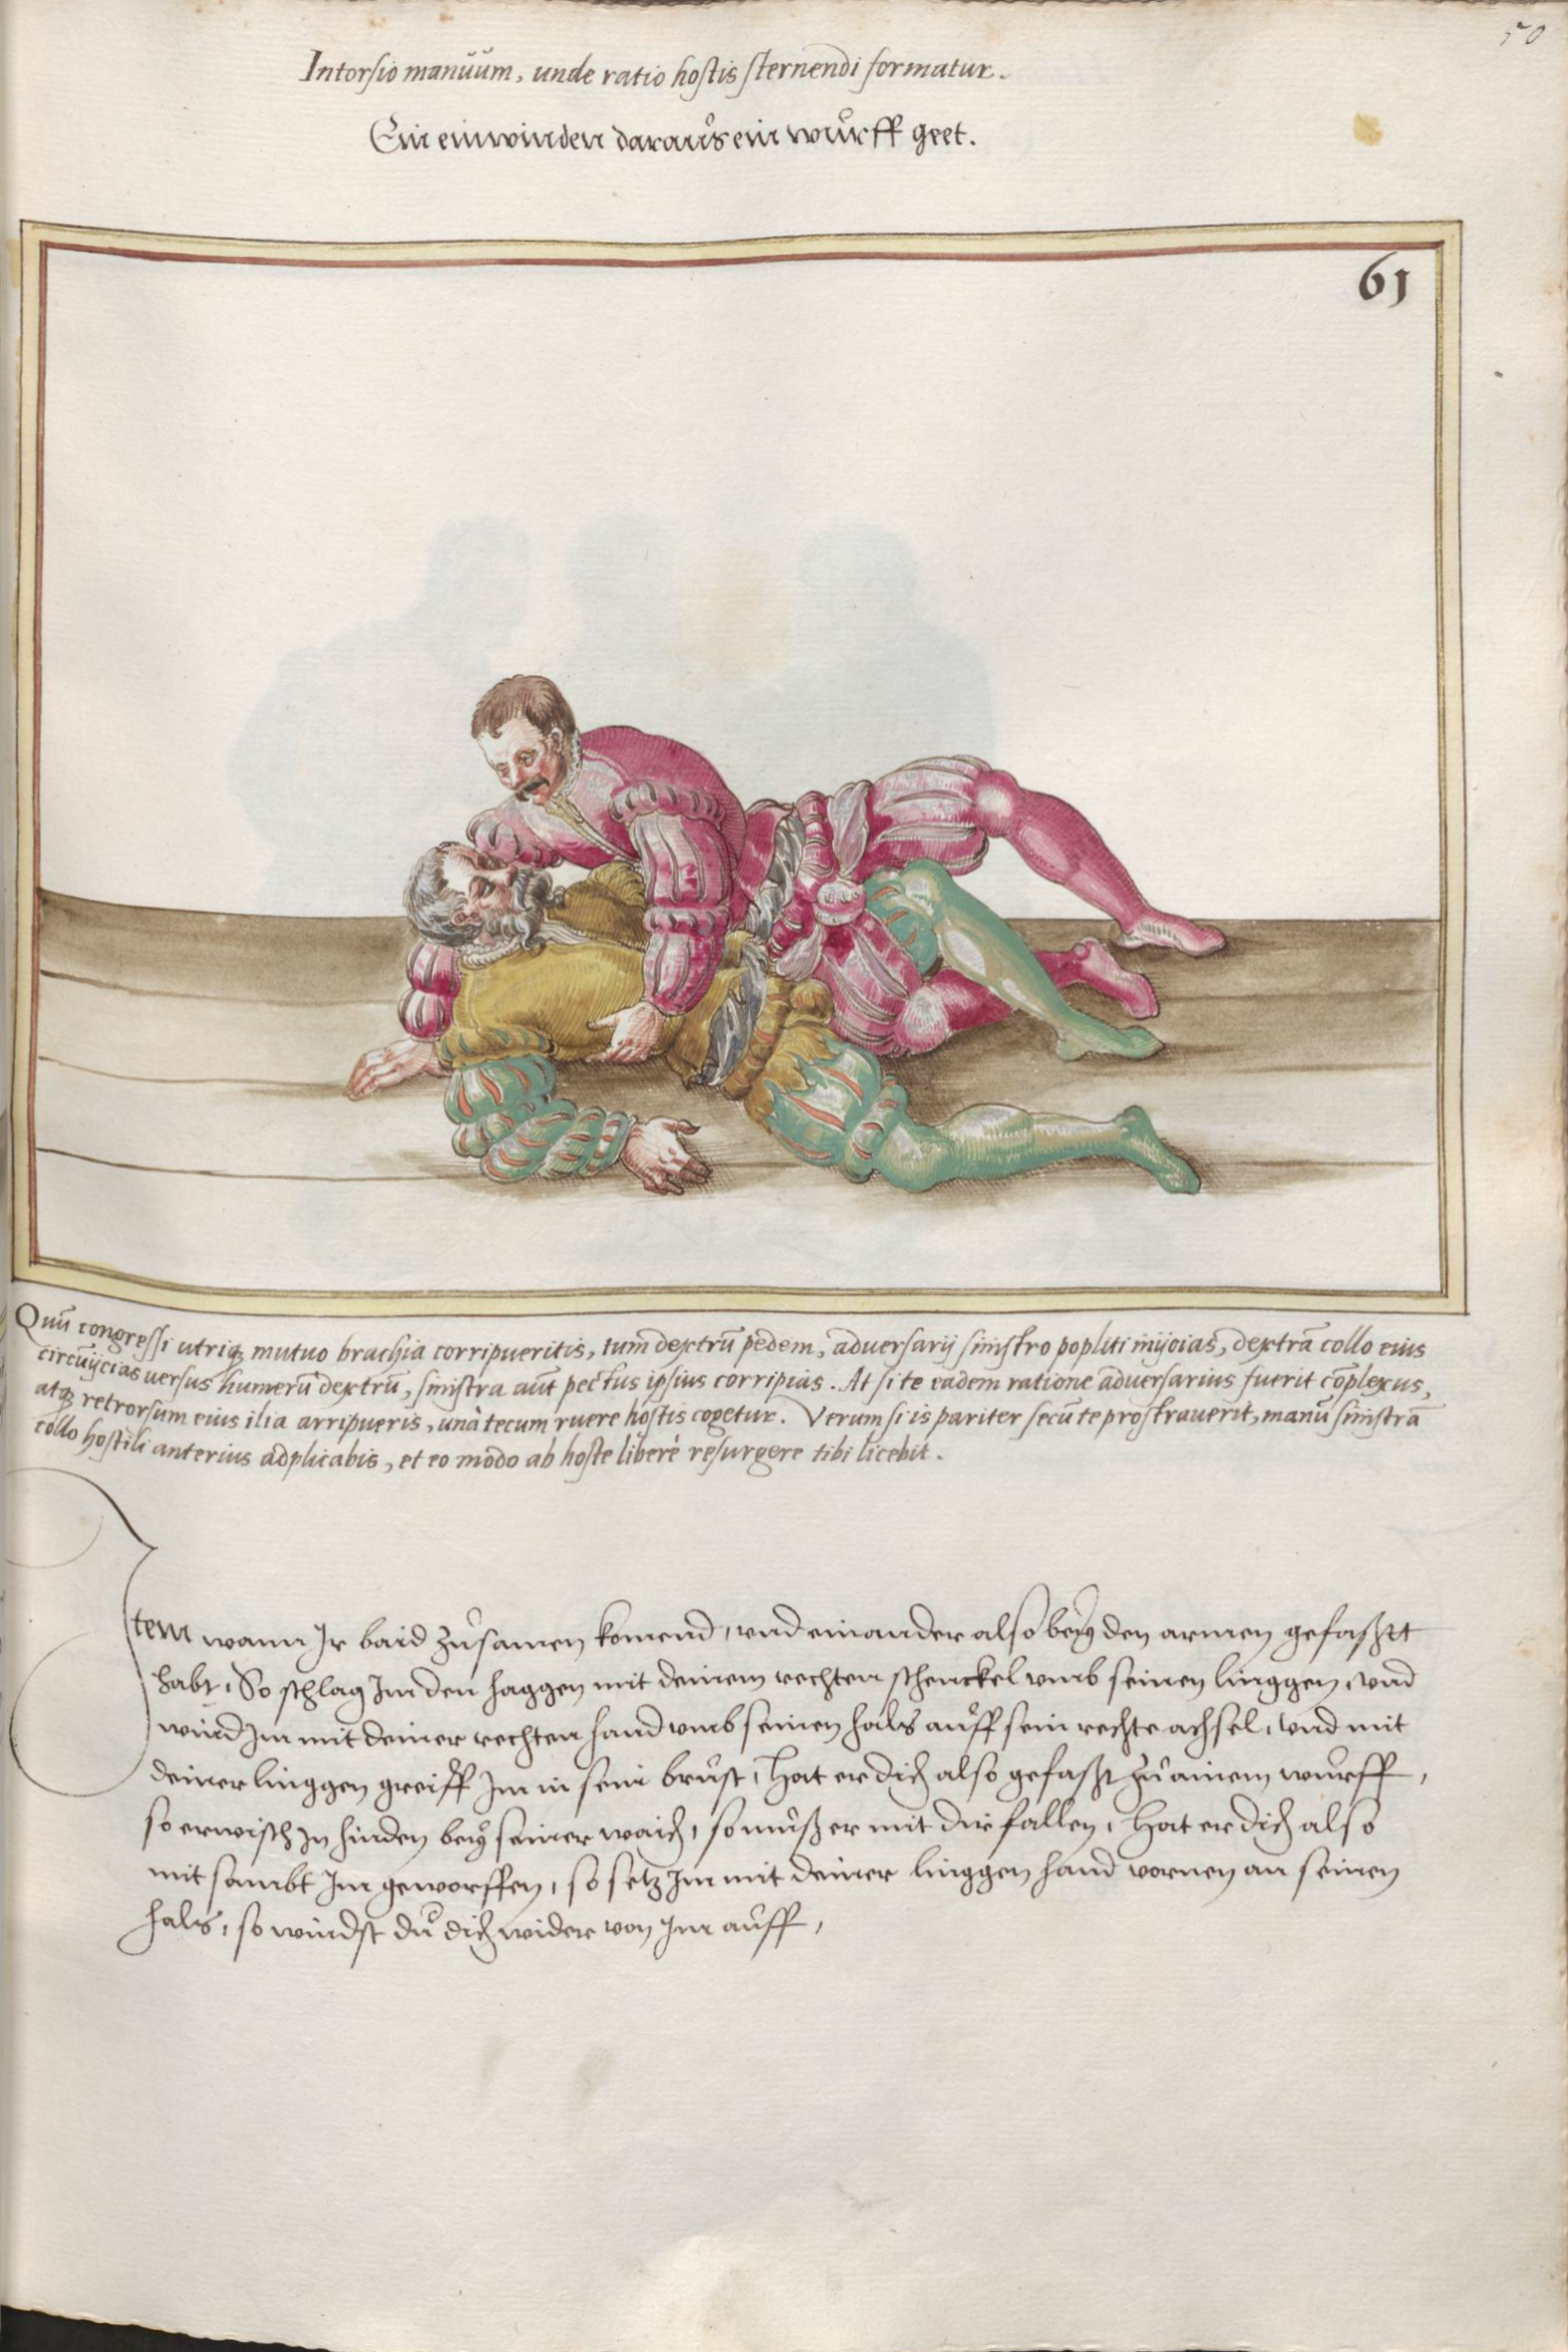 50
Intorsio manuum, unde ratio hostis sternendi formatur.
Ein einwinden daraus ein wurff geet.
61
Quū congressi utriq; mutuo brachia corripueritis, tum dextrū pedem, adversarij sinistro popliti inijcias, dextrā collo eius
circūijcias versus humerū dextrū, sinistra aūt pectus ipsius corripias. At si te eadem ratione adversarius fuerit cōplexus,
atq; retrorsum eius ilia arripueris, unà tecum ruere hostis cogetur. Verum si is pariter secū te prostraverit, manū sinistrā
collo hostili anterius adplicabis, et eo modo ab hoste liberè resurgere tibi licebit.
Item wann Ir baid zusamen komend, und einander also bey den armen gefaßt
habt, So schlag Im den haggen mit deinem rechten schenckel umb seinen linggen, und
wind Im mit deiner rechten hand umb seinen hals auff sein rechte achsel, und mit
deiner linggen greiff Im in sein brust, Hat er dich also gefaßt zu ainem wurff,
so erwisch In hinden bey seiner waich, so muß er mit dir fallen, Hat er dich also
mit sambt Im geworffen, so setz Im mit deiner linggen hand vornen an seinen
hals, so windst du dich wider von Im auff,